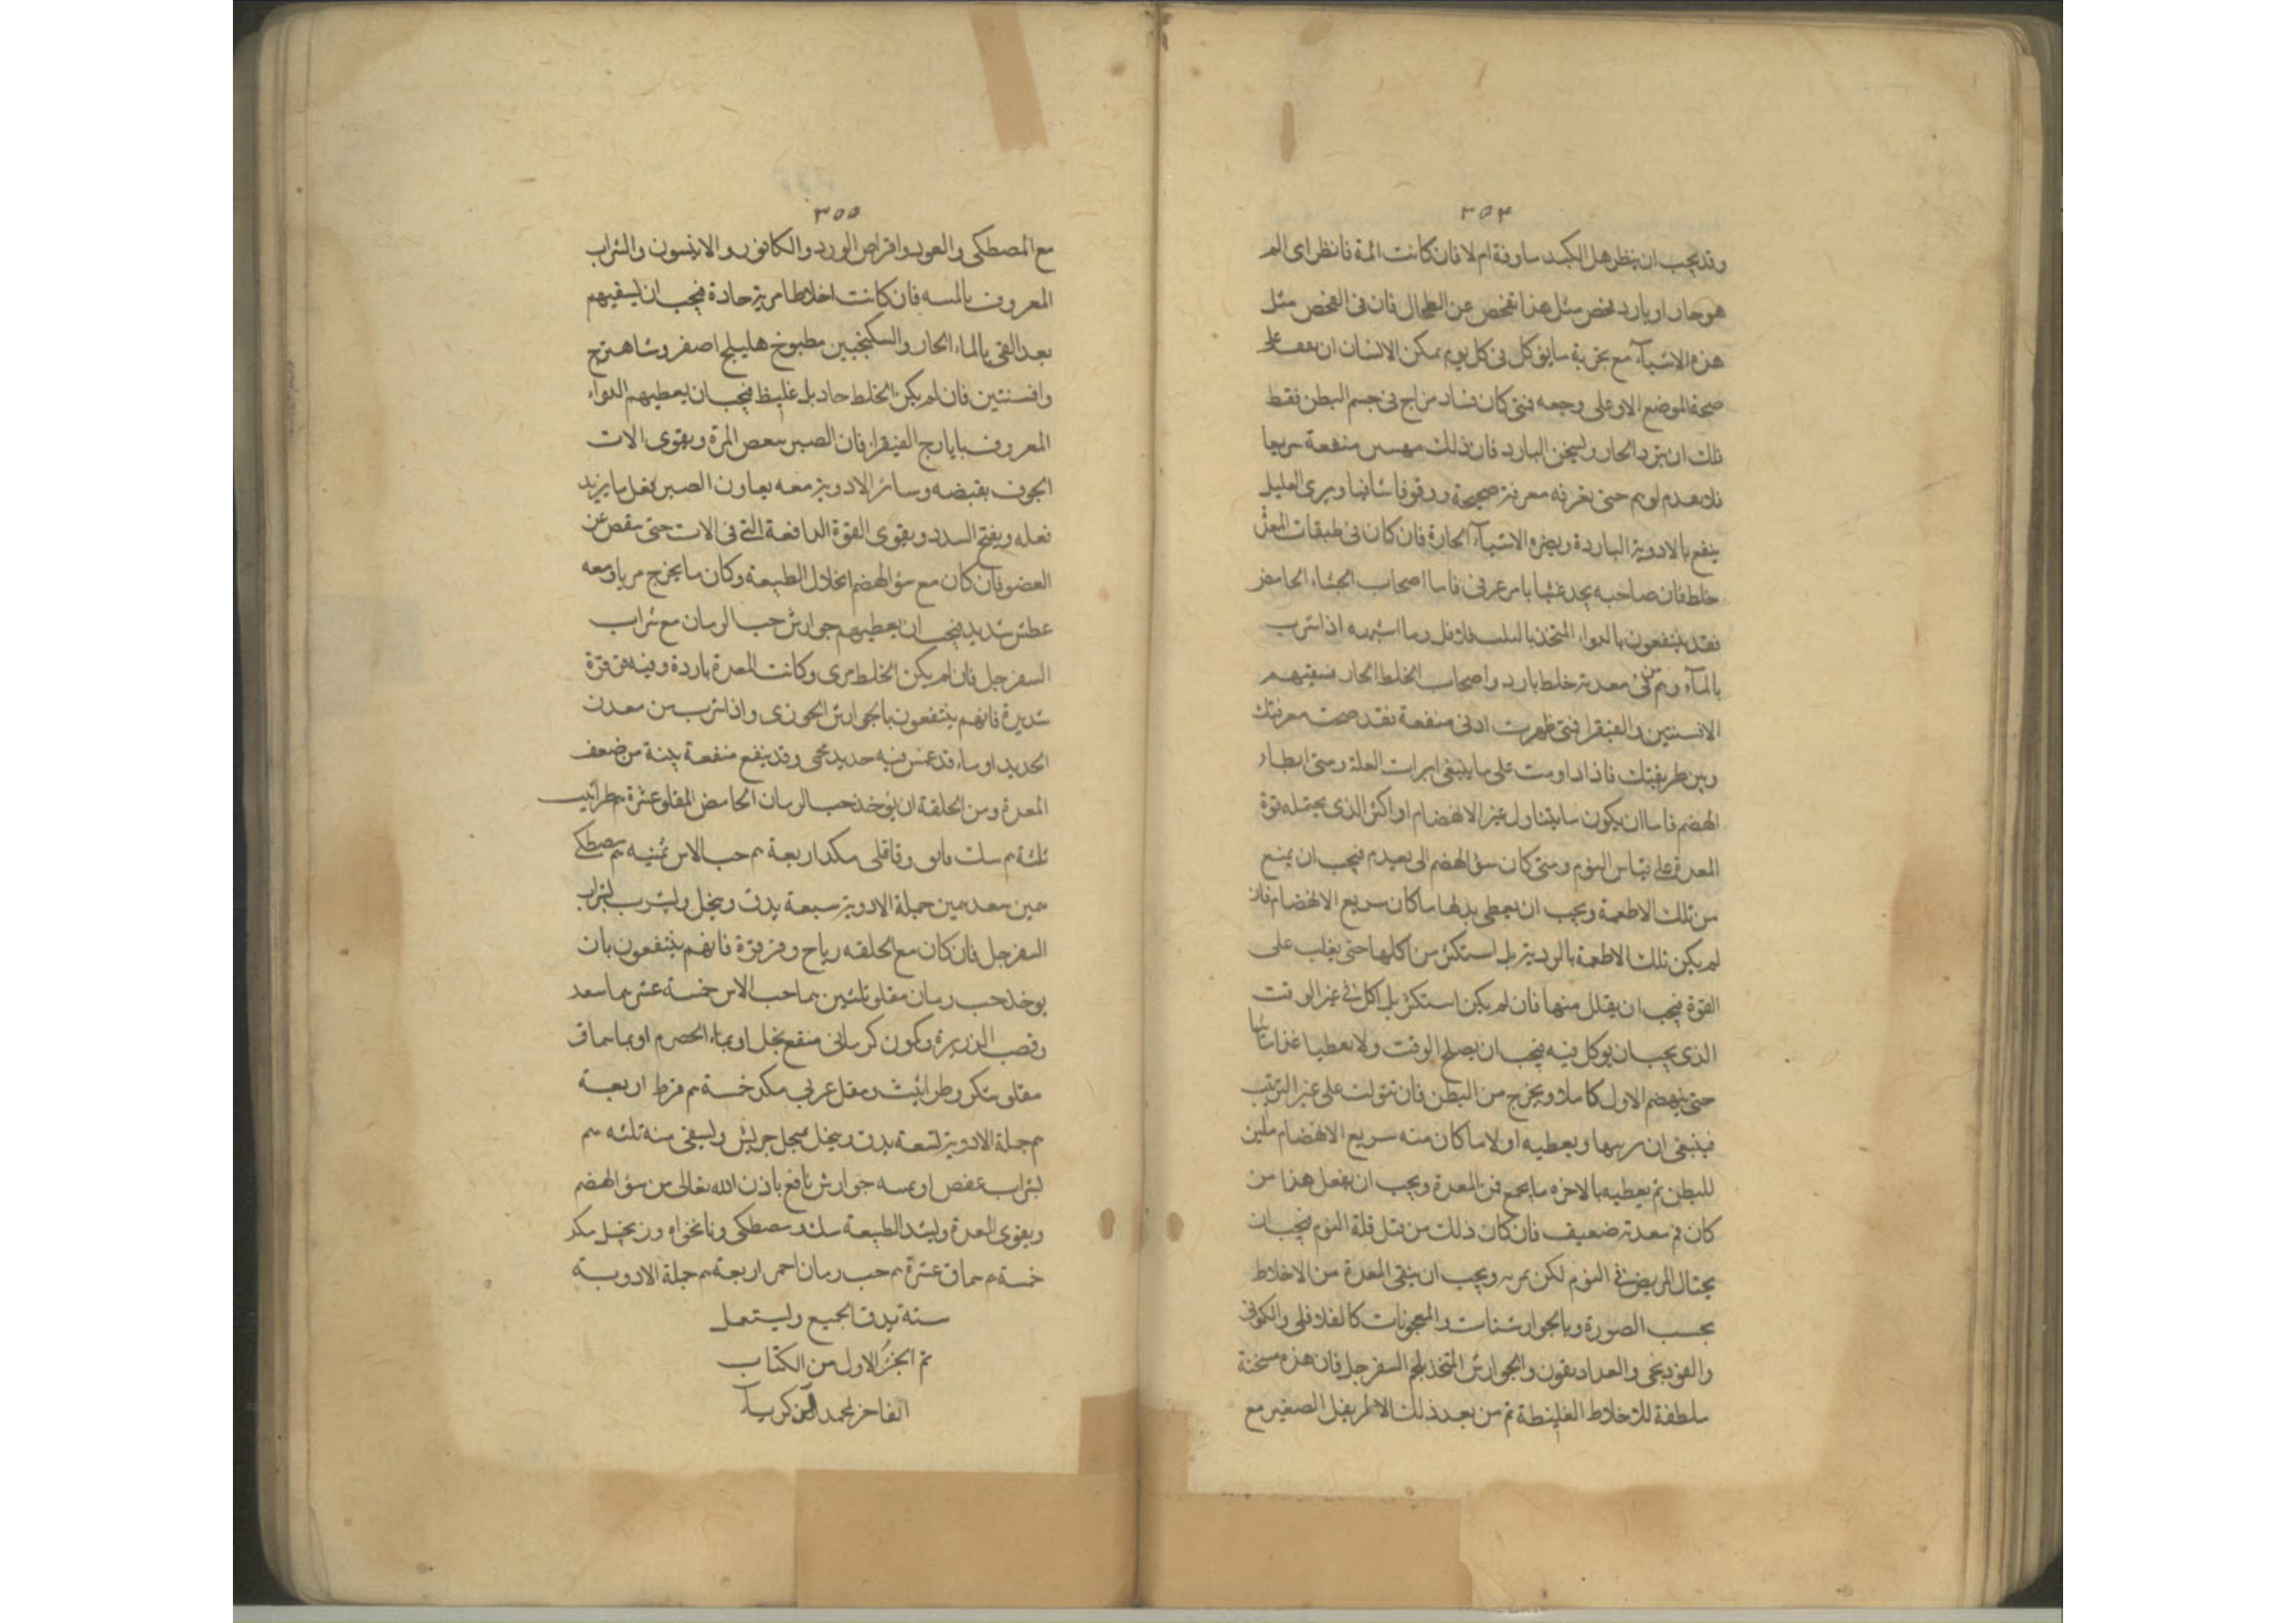 ٣٥٤
وقد يجب ان ينظر هل الكبد ماوفة ام لا فان كانت ائمة فانظر اى الم
هو حار او بارد فحص مثل هذا تفحص عن الطحال فان فى الفحص مثل
هذه الاشيآء مع تجربة ما يؤكل فى كل يوم يمكن الانسان ان على
صحة الموضع الاو على وجعه فمتى كان فساد مزاج فى جسم البطن فقط
تلك ان يبرد الحار ويسخن البارد فان ذلك منفعة سريعا
حتى تعرفه معرفة صحيحة ويرى العليل
ينفع بالادوية الباردة ويضره الاشيآء الحارة فان كان فى طبقات المعدة
خلط فان صاحبه يجد غثيا فاما اصحاب الجشاء الحامض
فقد ينتفعون بالدواء المتخذ فلافل وما اشبهه اذا شرب
بالمآء وهم من فى معدته خلط بارد واصحاب الخلط الحار فسقيهم
الافسنتين والفيقرا فمتى ظهرت ادنى منفعة فقد صحت معرفتك
وبين طريقتك فاذا داومت على ما ينبغى ابرات العلة ومتى ابطا
الهضم فاما ان يكون ما يتناول غير الانهضام او اكثر الذى يحتمله قوة
المعدة على قياس النوم ومتى كان سؤ الهضم الى بعيدم فيجب ان يمنع
من تلك الاطعمة ويجب ان يعطى بدلها ما كان سريع الانهضام فان
لم يكن تلك الاطعمة بالردية بل استكثر من اكلها حتى يغلب على
القوة فيجب ان يقلل منها فان لم يكن استكثر بل اكل فى غير الوقت
الذى يجب ان يوكل فيه فيجب ان يصلح الوقت ولا يعطيا غذا ثانيا
حتى ينهضم الاول كاملا ويخرج من البطن فان تنولت على غير الترتيب
فينبغى ان يرتبها ويعطيه اولا ما كان منه سريع الانهضام ملين
للبطن ثم يعطيه بالاخره ما يجمع فم المعدة ويجب ان يفعل هذا من
كان فم معدته ضعيف فان كان ذلك من قبل قلة النوم فيجب ان
يحتال المريض فى النوم لكن يمر به ويجب ان ينقى المعدة من الاخلاط
بحسب الصورة وبالجوارشنات والمعجونات كالفلافلى والكمونى
والفوديجى والعداديقون والجوارش المتخذ بلحم السفرجل فان هذه مسخنة
ملطفة للاخلاط الغليظة ثم من بعد ذلك الاطريفل الصغير مع
٣٥٥
مع المصطكى والعود واقراص الورد والكافور والانيسون والشراب
المعروف بالمسه فان كانت اخلاطا مرية حادة فيجب ان يسقيهم
بعد القى بالماء الحار والسكنجبين مطبوخ هليلج اصفر وشاهترج
وافسنتين فان لم يكن الخلط حاد بل غليظ فيجب ان يعطيهم الدواء
المعروف بايارج الفيقرا فان الصبر المرة ويقوى الات
الجوف بقبضه وسائر الادوية معه يعاون الصبر بفعل ما يزيد
فعله ويفتح السدد ويقوى القوة الدافعة التى فى الات حتى عن
العضو فان كان مع سؤ الهضم انحلال الطبيعة وكان ما يخرج مريا ومعه
عطش شديد فيجب ان يعطيهم جوارش حب الرمان مع شراب
السفرجل فان لم يكن الخلط مرى وكانت المعدة باردة وفيه قرقرة
شديرة فانهم ينتفعون بالجوارش الجوزى واذا شرب من معدن
الحديد او ماء قد غمس فيه حديد محمى وقد ينفع منفعة بينة من ضعف
المعدة ومن الخلفة ان يوخذ حب الرمان الحامض المقلو عشرة طراثيث
ثلثة سك وقاقلى مكد اربعة حب الاس ثمنيه مصطكى
جملة الادوية سبعة يدق وينخل ويشرب بشراب
السفرجل فان كان مع الخلفه رياح وقرقرة فانهم ينتفعون بان
يوخذ حب رمان مقلو ثلثين حب الاس خمسة عشر سعد
وقصب الذريرة وكمون كرمانى منقع بخل او بماء الحصرم او بماسماق
مقلو سكر وطراثيث ومقل عربى مكد خمسة قرط اربعة
جملة الادوية تسعة يدق وينخل ويسقى منه ثلثه
بشراب عفص او جوارش نافع باذن الله تعالى من سؤ الهضم
ويقوى المعدة ويشد الطبيعة سك ومصطكى ونانخواه وزنجبيل مكد
خمسة سماق عشرة حب رمان احمر اربعة جملة الادوية
ستة يدق الجميع ويستعمل
تم الجزء الاول من الكتاب
الفاخر لمحمد ابن زكريآ